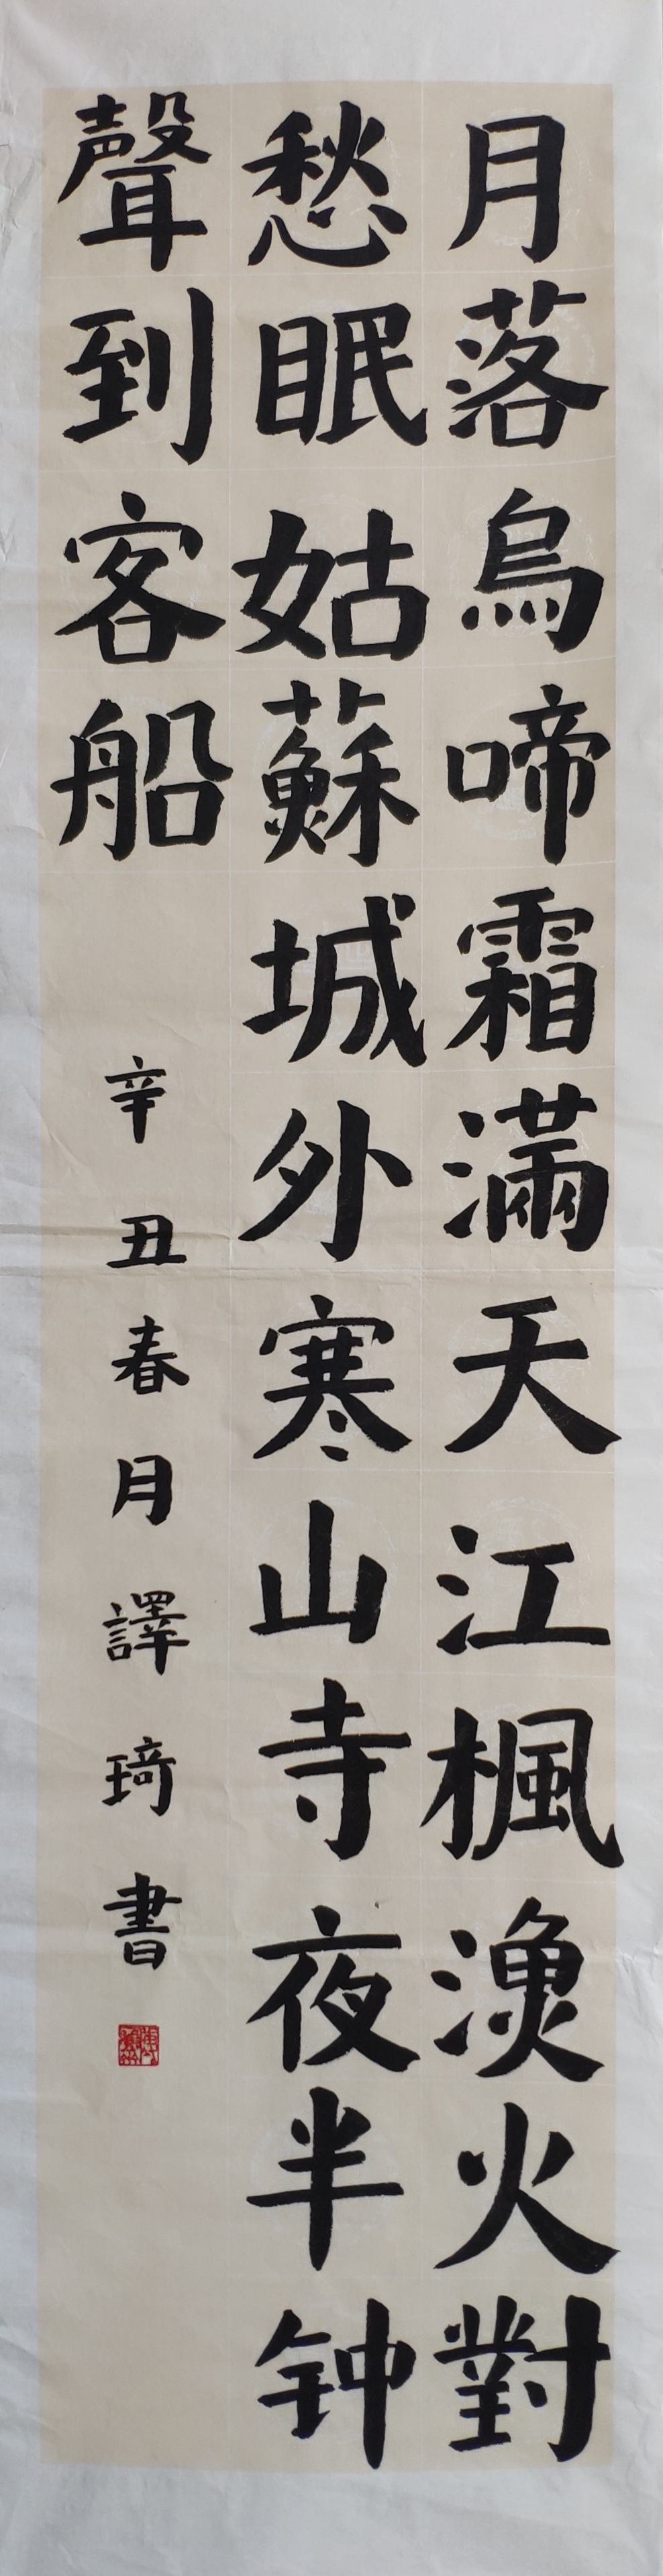 月落烏啼霜滿天江楓漁火對
愁眠姑蘇城外寒山寺夜半钟
聲到客船
辛丑春月譯琦書